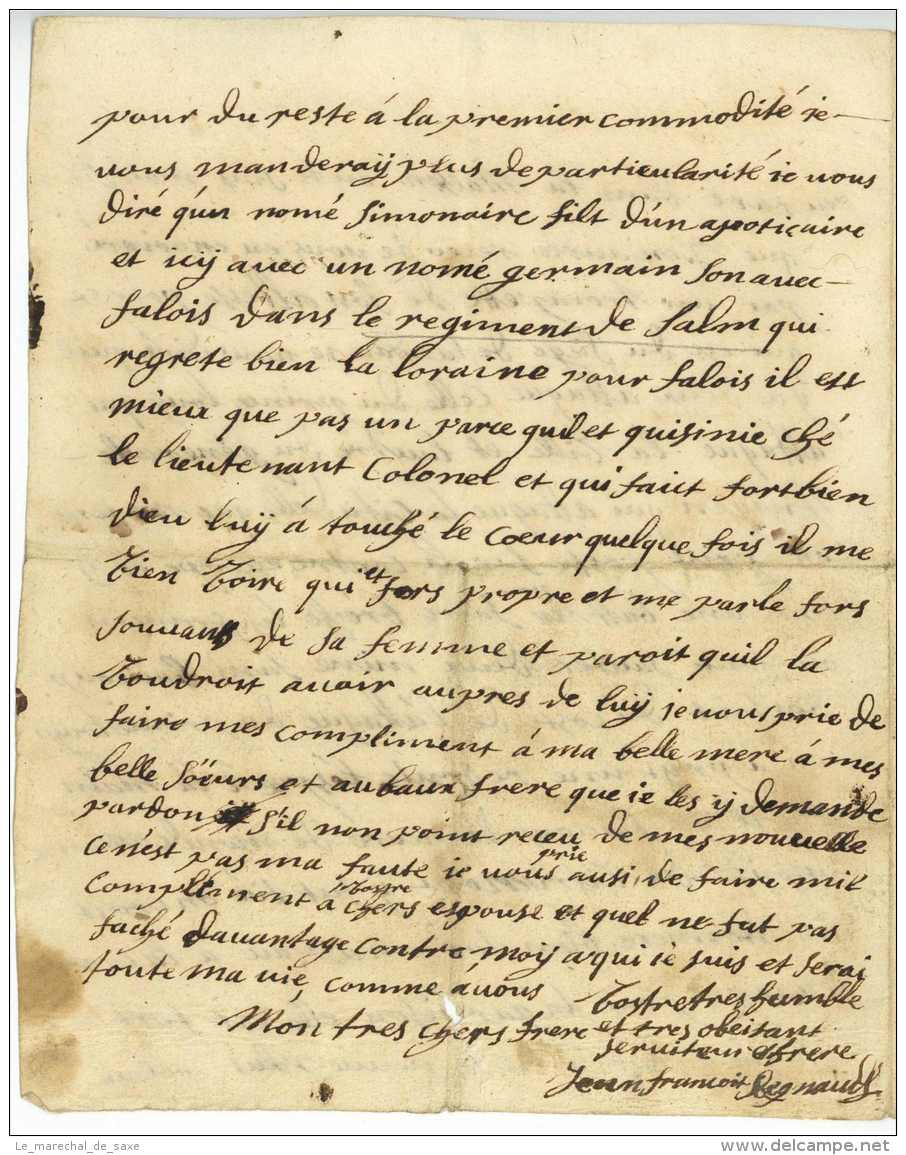 pour du reste á la premier commodité ie
vous manderaÿ plus de particularité ie vous
diré q'un nomé simonaire filt d'un apoticaire
et icÿ avec un nomé germain son avec
falois dans le regiment de salm qui
regrete bien la loraine pour falois il est
mieux que pas un parce quil et quisinie ché
le lieutenant Colonel et qui fait fort bien
dieu luÿ á touché le coeur quelque fois il me
vien voire qui et fors propre et me parle fors
souvans de sa femme et paroit quil la
voudroit avoir aupres de luÿ ie vous prie de
faire mes compliment á ma belle mere á mes
belle söeurs et au baux frere que ie les ÿ demande
pardon s'il non point receu de mes nouvelle
ce n'est pas ma faute ie vous prie ausi de faire mil
compliment á vostre chers espouse et quel ne fut pas
faché davantage contre moÿ a qui ie suis et serai
toute ma vie, comme á vous
vostre tres humble
Mon tres chers frere et tres obeisant
serviteur et frere
Jean francois Regnauds
Le_marechal_de_saxe
delcampe.net